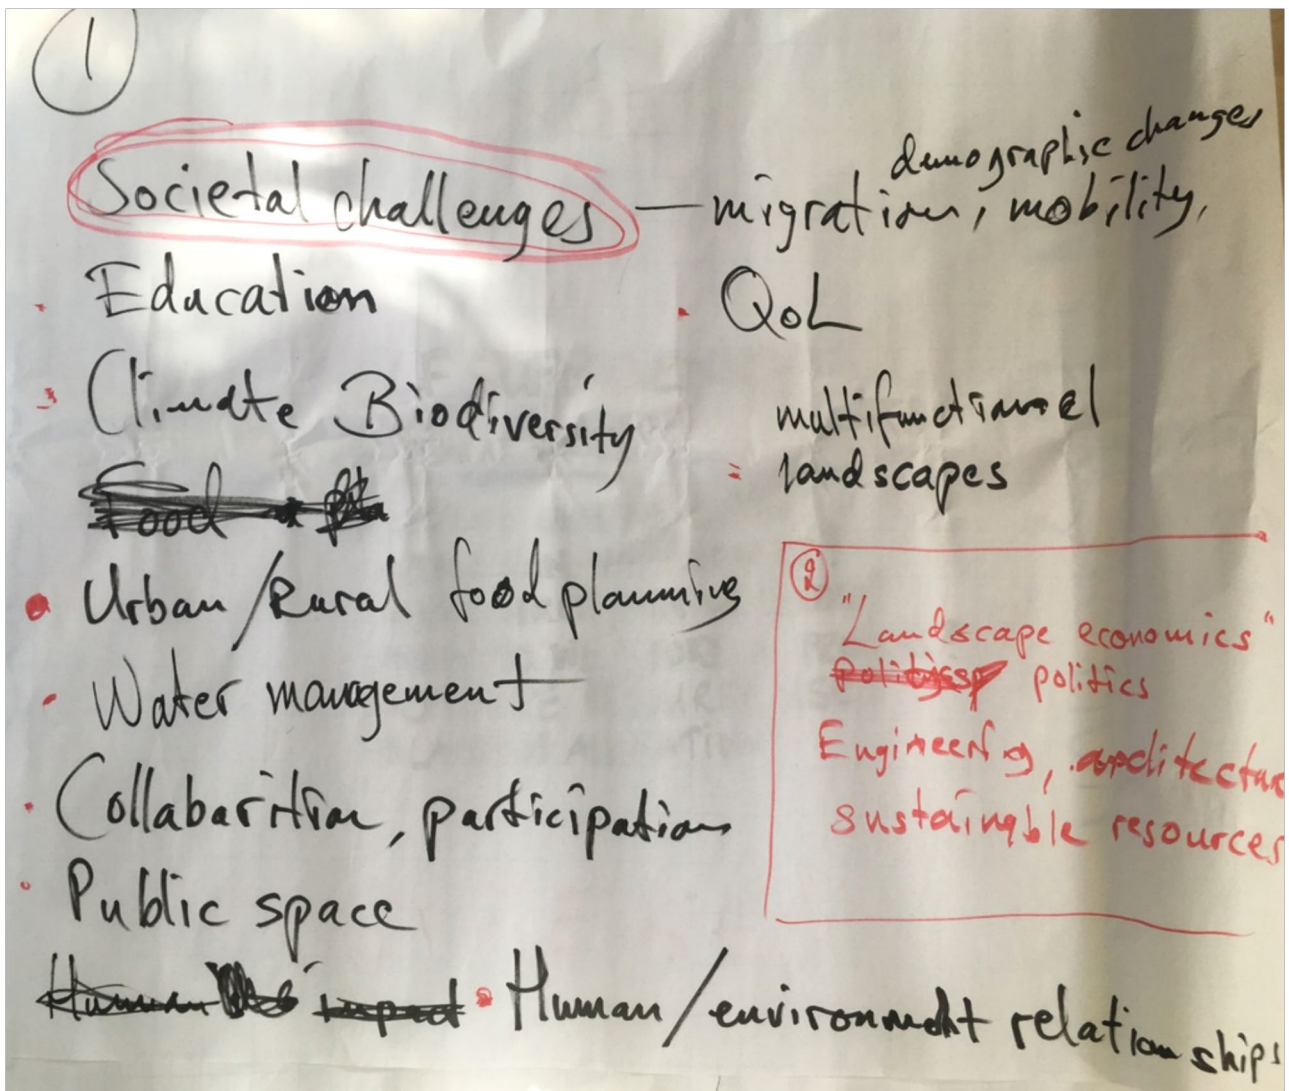 1
demographic changes
Societal challenges — migration, mobility,
Education
QoL
Climate Biodiversity
multifunctional
landscapes
Food
Urban/Rural food planning
Water management
Collabarition, participation
Public space
Human impact
Human/environment relationships
2
"Landscape economics"
politics
Engineering, architectur
sustainable resources